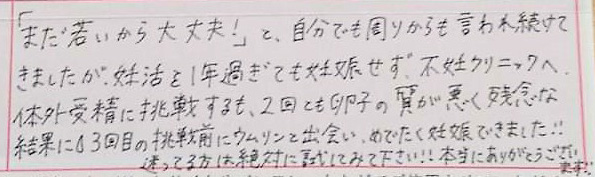 「まだ若いから大丈夫!」と、自分でも周りからも言われ続けて
きましたが、妊活を1年過ぎても妊娠せず、不妊クリニックへ。
体外受精に挑戦するも、2回とも卵子の質が悪く残念な
結果に↓3回目の挑戦前にウムリンと出会い、めでたく妊娠できました!!
迷ってる方は絶対に試してみて下さい!!本当にありがとうござい
ます!!